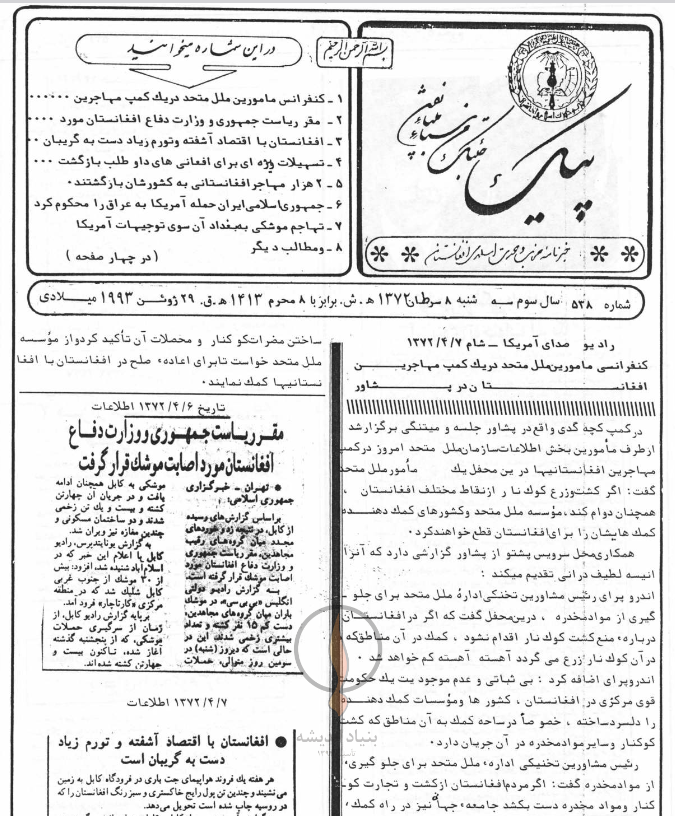 بسم الله الرحمن الرحیم
پیک
خبرنامه حزب وحدت اسلامی افغانستان
در این شماره میخوانید
۱ ـ کنفرانس مامورین ملل متحد دریک کمپ مهاجرین ......
۲ ـ مقر ریاست جمهوری و وزارت دفاع افغانستان مورد ....
۳ ـ افغانستان با اقتصاد آشفته وتورم زیاد دست به گریبان ..
۴ ـ تسهیلات ویژه ای برای افغانی های داو طلب بازگشت ...
۵ ـ ۲ هزار مهاجر افغانستانی به کشورشان بازگشتند.
۶ ـ جمهوری اسلامی ایران حمله آمریکا به عراق را محکوم کرد
۷ ـ تهاجم موشکی به بغداد آن سوی توجیهات آمریکا
۸ ـ ومطالب دیگر
( در چهار صفحه )
شماره ۵۲۸ سال سوم سه شنبه ۸ سرطان ۱۳۷۲ ه.ش. برابر با ۸ محرم ۱۴۱۳ ه.ق. ۲۹ ژوئن ۱۹۹۳ میلادی
رادیو صدای آمریکا ـ شام ۱۳۷۲/۴/۷
کنفرانسی مامورین ملل متحد دریک کمپ مهاجرین
افغانستان در پشاور
درکمپ کچه گدی واقع در پشاور جلسه و میتنگی برگزار شد
ازطرف مأمورین بخش اطلاعات سازمان ملل متحد امروز درکمپ
مهاجرین افغانستانیها در ین محفل یک مأمور ملل متحد
گفت: اگر کشت وزرع کوکنار ازنقاط مختلف افغانستان ،
همچنان دوام کند، مؤسسه ملل متحد وکشورهای کمک دهنده
کمک هایشان را برای افغانستان قطع خواهند کرد.
همکاری محل سرویس پشتو از پشاور گزارشی دارد که آنرا
انیسه لطیف درانی تقدیم میکند :
اندرو پرای رئیس مشاورین تخنیکی ادارهٔ ملل متحد برای جلو ـ
گیری از موادمخدره ، درین محفل گفت که اگر درافغانستان
درباره منع کشت کوکنار اقدام نشود ، کمک در آن مناطق که
درآن کوکنار زرع می گردد آهسته آهسته کم خواهد شد .
اندروپرای اضافه کرد : بی ثباتی و عدم موجودیت یک حکومت
قوی مرکزی در افغانستان ، کشور ها ومؤسسات کمک دهنده
را دلسرد ساخته ، خصوصاً درساحه کمک به آن مناطق که کشت
کوکنار و سایر موادمخدره در آن جریان دارد.
رئیس مشاورین تخنیکی اداره ملل متحد برای جلو گیری،
از موادمخدره گفت: اگر مردم افغانستان ازکشت و تجارت کو ـ
کنار ومواد مخدره دست بکشد جامعه جهانی نیز در راه کمک ،
ساختن مضرات کوکنار و محصلات آن تأکید کردو از مؤسسه
ملل متحد خواست تابرای اعاده صلح در افغانستان با افغا
نستانیها کمک نمایند.
تاریخ ۱۳۷۲/۴/۶ اطلاعات
مقر ریاست جمهوری و وزارت دفاع
افغانستان مورد اصابت موشک قرار گرفت
● تهران ـ خبرگزاری
جمهوری اسلامی:
براساس گزارش‌های رسیده
از کابل، در نتیجه زد و خوردهای
مجدد میان گروههای رقیب
مجاهدین، مقر ریاست جمهوری
و وزارت دفاع افغانستان مورد
اصابت موشک قرار گرفته است.
به گزارش رادیو دولتی
انگلیس «بی‌بی‌سی»، در موشک
باران میان گروه‌های مجاهدین،
دست کم ۱۵ نفر کشته و تعداد
بیشتری زخمی شدند. این در
حالی است که دیروز (شنبه) در
سومین روز متوالی، حملات
موشکی به کابل همچنان ادامه
یافت و در جریان آن چهارتن
کشته و بیست و یک تن زخمی
شدند و دو ساختمان مسکونی و
چندین مغازه نیز ویران شد.
به گزارش یونایتدپرس، رادیو
کابل با اعلام این خبر که در
اسلام‌آباد شنیده شد، افزود: بیش
از ۳۰ موشک از جنوب غربی
کابل شلیک شد که در منطقه
مرکزی «کارتاچار» فرود آمد.
برپایه گزارش رادیو کابل، از
زمان از سرگیری حملات
موشکی، که از پنجشنبه گذشته
آغاز شده، تاکنون بیست و
چهارتن کشته شده‌اند.
۱۳۷۲/۴/۷ اطلاعات
● افغانستان با اقتصاد آشفته و تورم زیاد
دست به گریبان است
هر هفته یک فروند هواپیمای جت باری در فرودگاه کابل به زمین
می‌نشیند و چندین تن پول رایج خاکستری و سبز رنگ افغانستان را که
در روسیه چاپ شده است تحویل می‌دهد.
بنیاد اندیشه